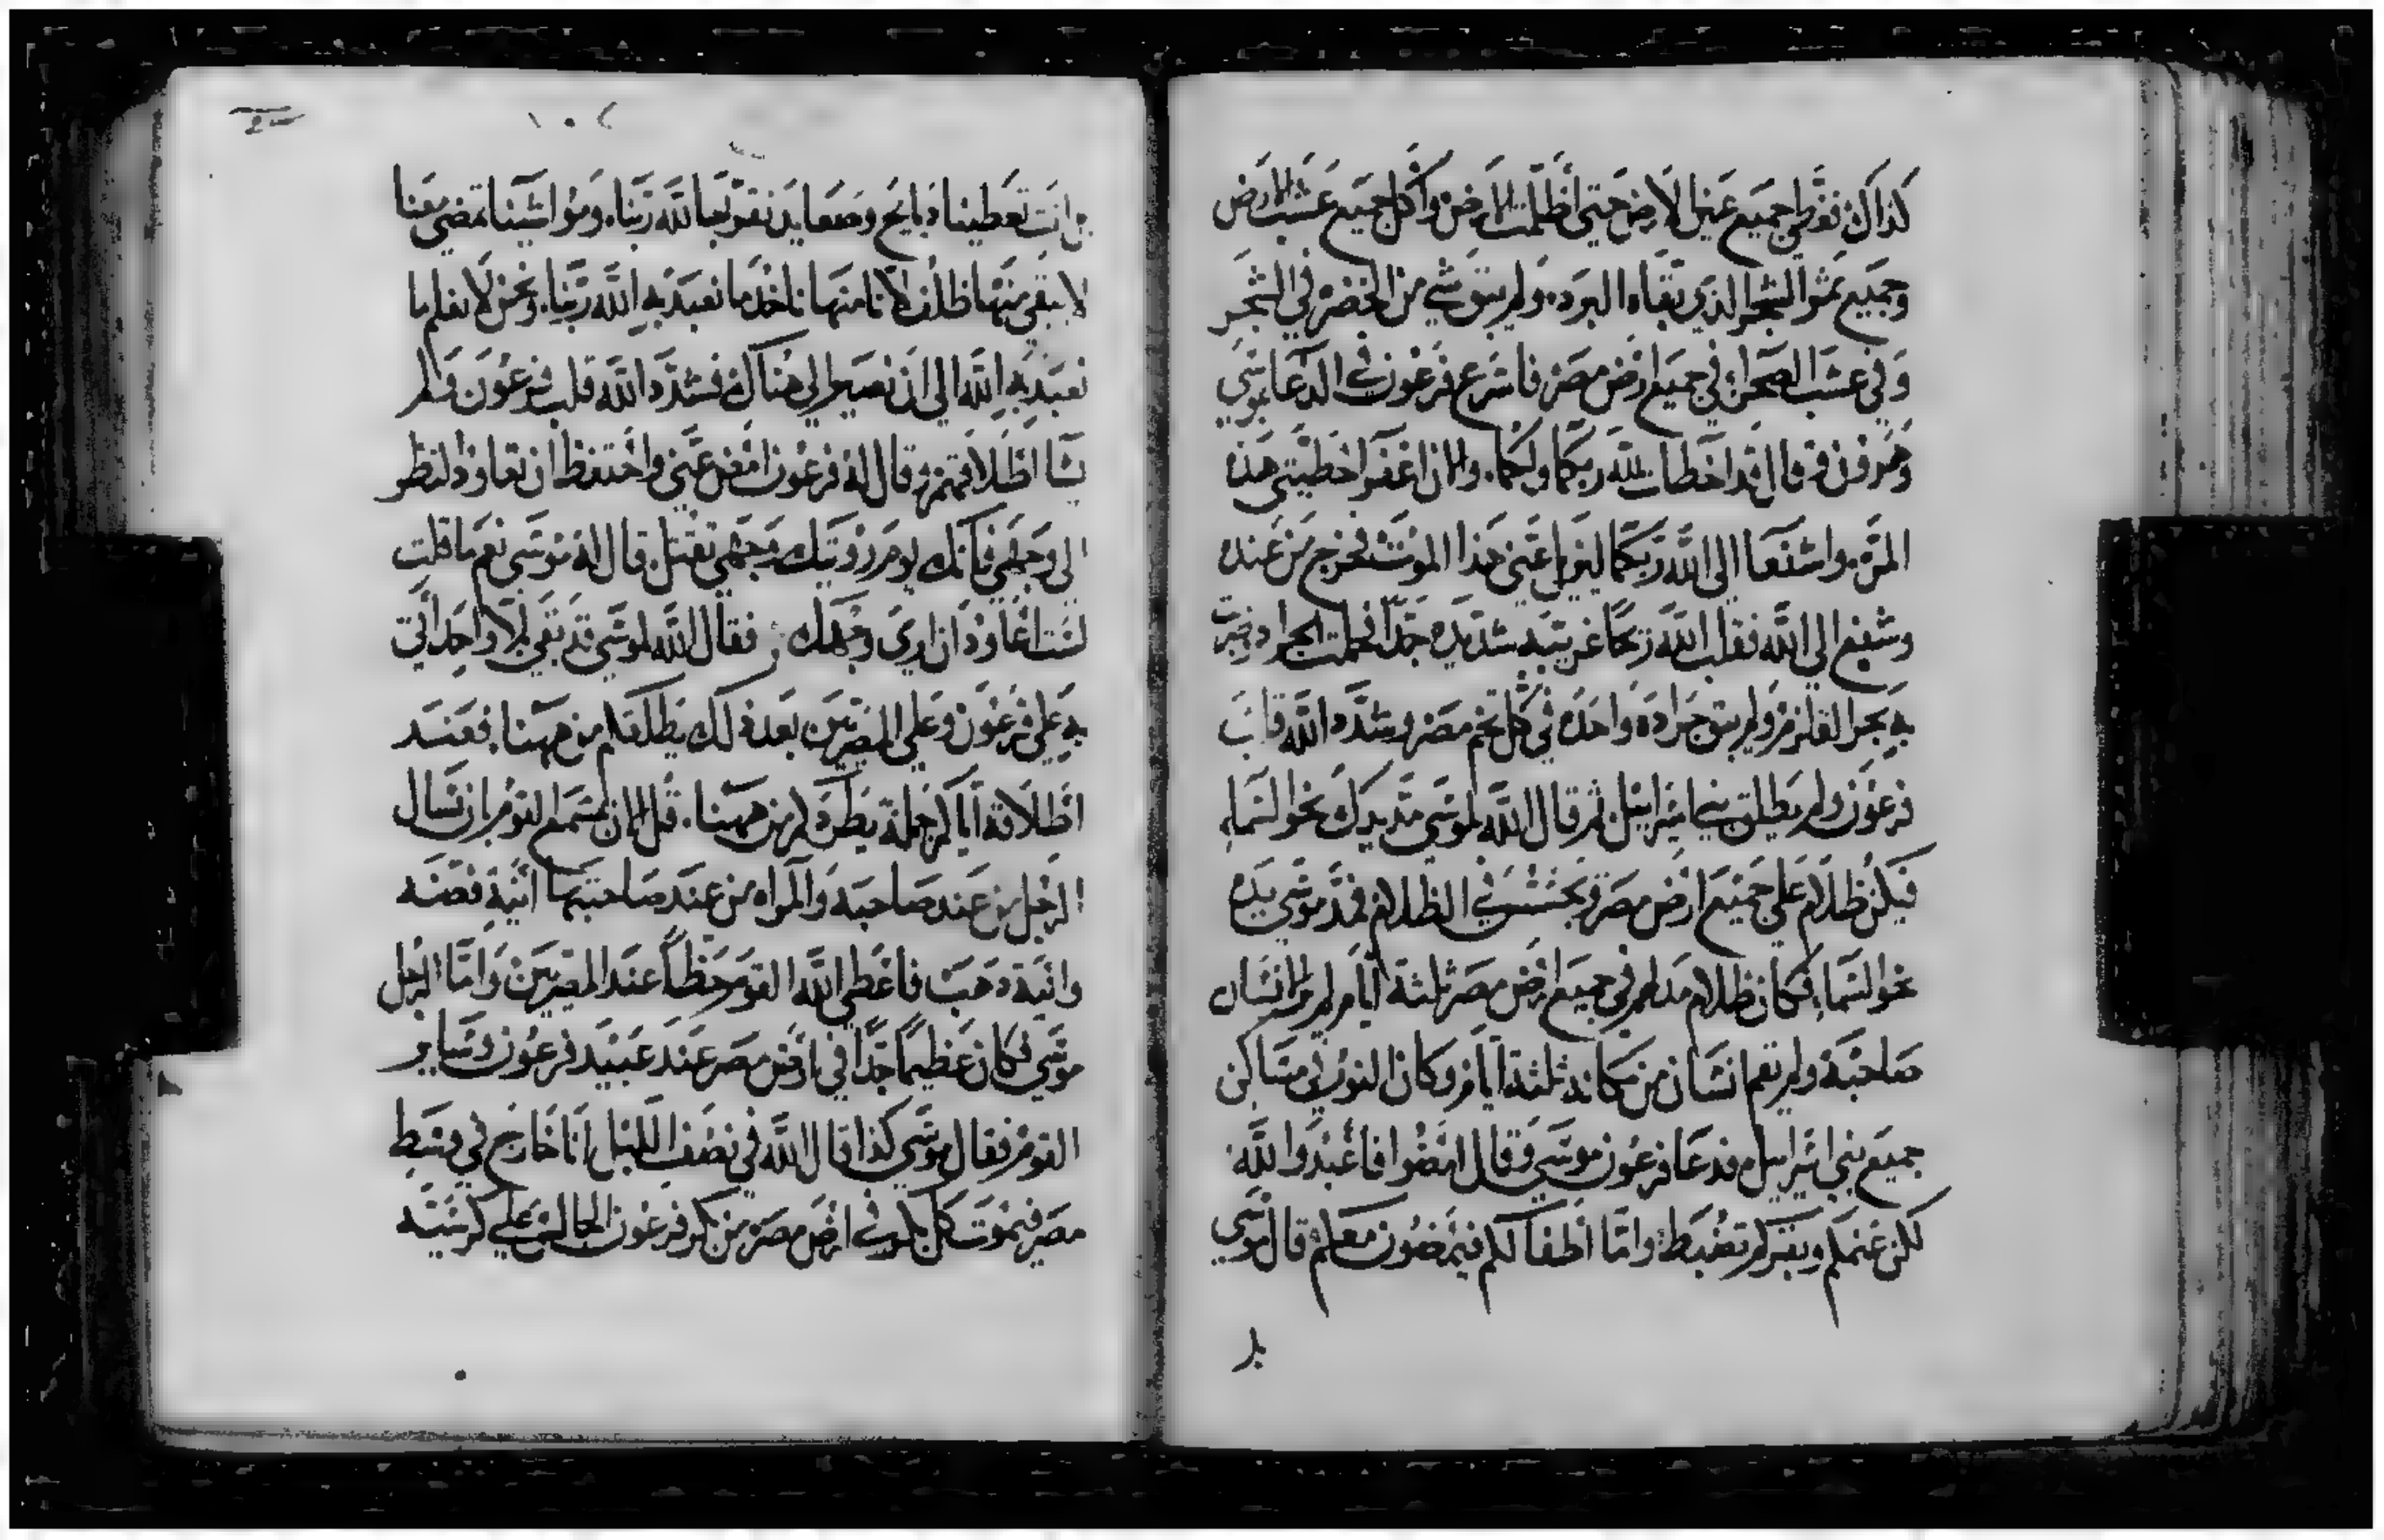 كذاك فغطي جميع عين الارض حتي أظلمت الارض وأكل جميع عشب الارض
وجميع ثمر الشجر الذي بقاه البرد. ولم يتبق شي من الخضرة في الشجر
وفي عشب الصحرا في جميع ارض مصر فاسرع فرعون في الدعا بموسي
وهرون وقال قد اخطات لله ربكما ولكما. والان اغفرا خطيتي هذه
المرة. واشفعا الي الله ربكما ليزيل عني هذا الموت فخرج من عنده
وشفع الي الله فقلب الله ريحا غربية شديدة جدا فحملت الجراد
به بحر القلزم ولم يبق جرادة واحدة في كل تخم مصر وشدد الله قلب
فرعون ولم يطلق بني اسرائيل ثم قال الله لموسي مد يدك نحو السماء
فيكن ظلام علي جميع ارض مصر في الظلام فمد موسي يده
نحو السماء فكان ظلام مدلهم في جميع ارض مصر ثلثة ايام لم ير انسان
صاحبه ولم يقم انسان من مكانه ثلثة ايام وكان النور في مساكن
جميع بني اسراييل فدعا فرعون موسي وقال امضوا فاعبدوا الله
لكن غنمكم وبقركم تضبط واما اطفالكم فيمضون معكم قال موسي
بل
بل انت تعطينا ذبايح وصعايد نقربها لله ربنا. ومواشينا تمضي معنا
لا يبقي منها ظلف لاننا منها ناخذ ما نعبد به الله ربنا. ونحن لا نعلم ما
نعبد به الله الي ان نصير الي هناك فشدد الله قلب فرعون ولم
يشا اطلاقهم وقال له فرعون امض عني واحتفظ ان تعاود لنظر
الي وجهي فانك يوم رؤيتك وجهي تقتل. قال له موسي نعم ما قلت
لست اعاود ان اري وجهك. فقال الله لموسي قد بقي بلاء واحد اتي
به علي فرعون وعلي المصريين بعد ذلك يطلقكم من ههنا. فعند
اطلاقه اياكم جملة يطردكم من ههنا. قل الان بمسمع القوم بان يسال
الرجل من عند صاحبه والمراه من عند صاحبتها انية فضه
وانية دهب فاعطي الله القوم حظا عند المصريين واما الرجل
موسي فكان عظيما جدا في ارض مصر عند عبيد فرعون وساير
القوم فقال موسي كذا قال الله في نصف الليل انا خارج في وسط
مصر فيموت كل بكر في ارض مصر من بكر فرعون الجالس علي كرسيه